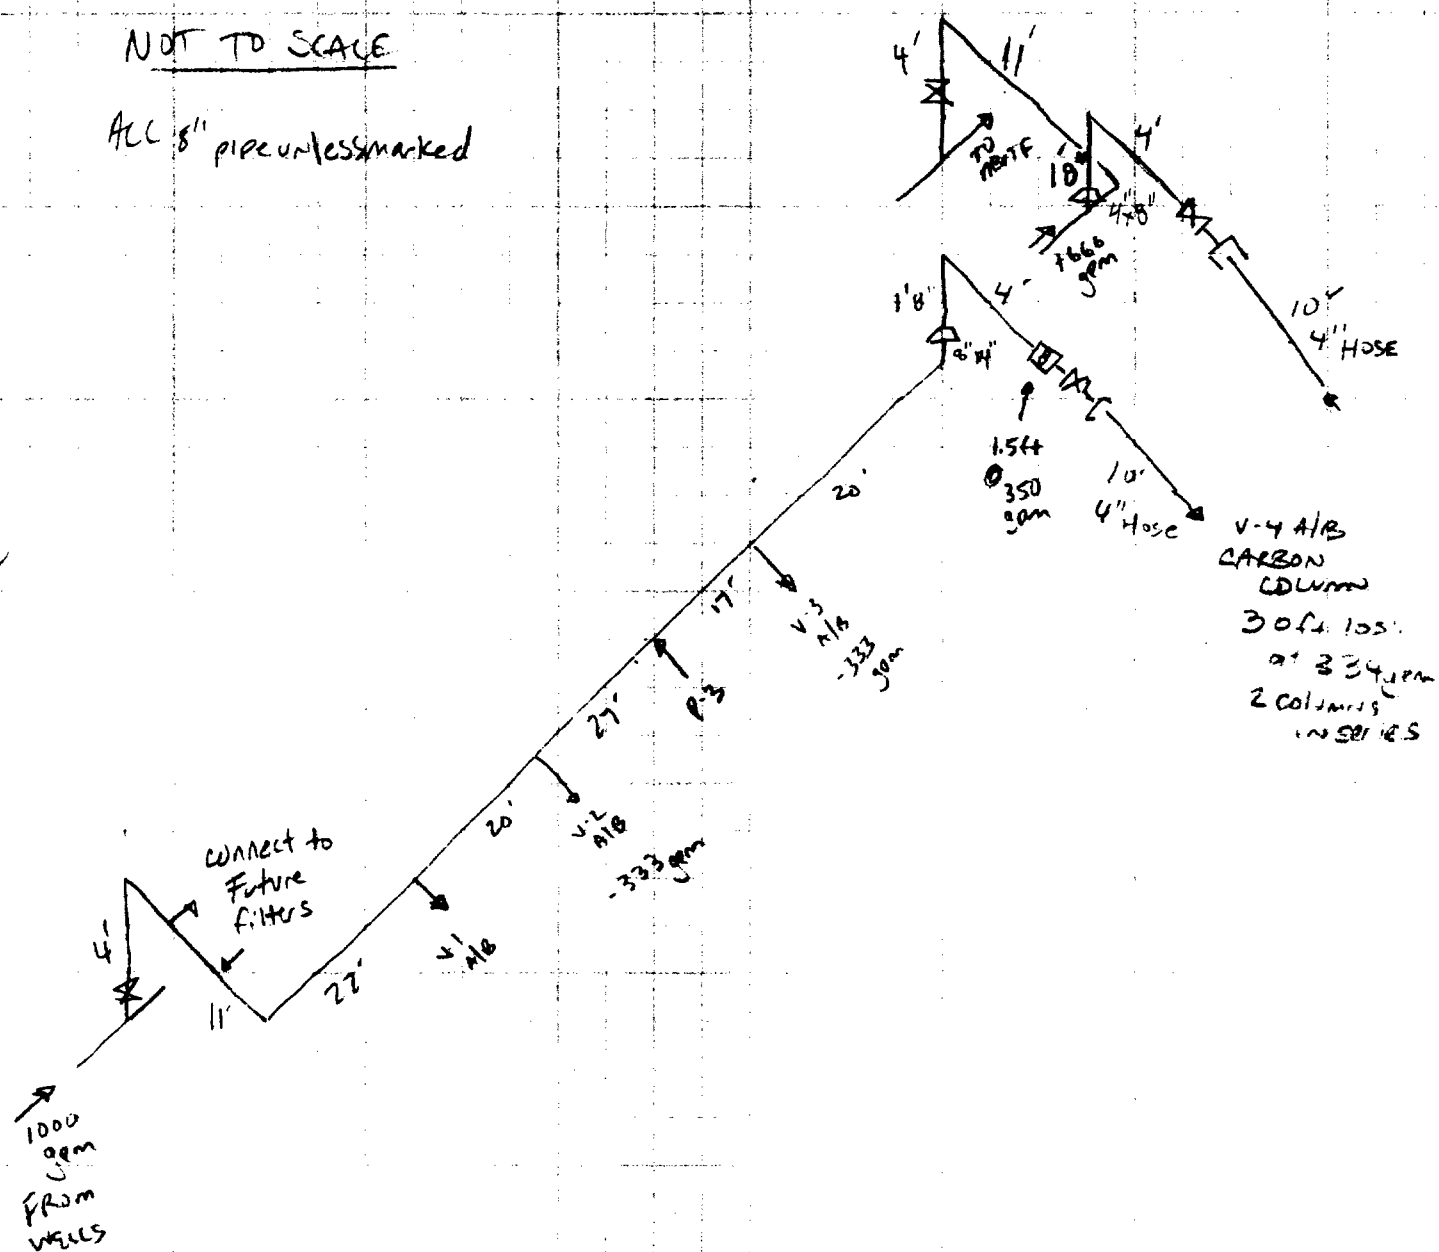 NOT TO SCALE
ALL 8" pipe unless marked
4'
11'
TO
18"
4'
4"x8"
+666
gpm
10'
4" HOSE
1'8"
4'
8"x4"
1.5ft
@
350
gpm
10'
4" Hose
V-4 A/B
CARBON
COLUMN
30ft loss
at 334 gpm
2 columns
IN SERIES
20'
17'
V-3
A/B
-333
gpm
P-3
27'
V-2
A/B
-333 gpm
20'
V-1
A/B
22'
connect to
Future
filters
4'
11'
1000
gpm
FROM
WELLS